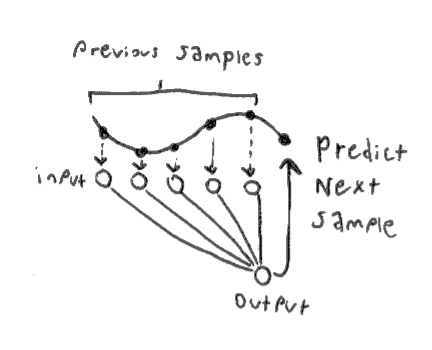 Previous samples
input
Predict
Next
sample
output